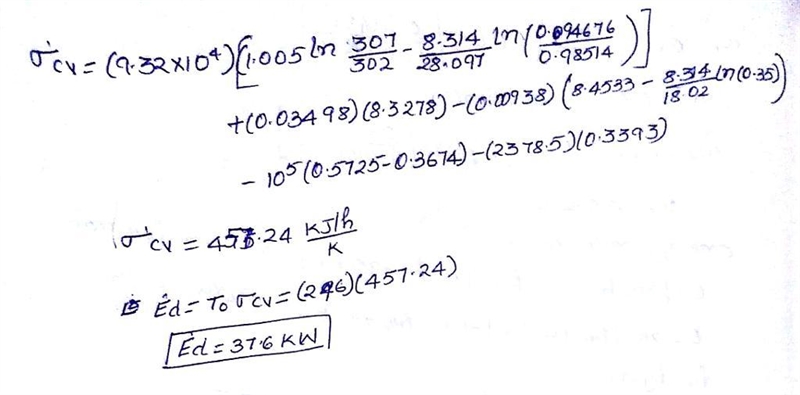 σ̇cv = (9.32×10⁴)[1.005 ln 307/302 − 8.314/28.097 ln(0.094676/0.98514)]
+(0.03498)(8.3278)−(0.00938)(8.4533 − 8.314/18.02 ln(0.35))
− 10⁵(0.5725−0.3674)−(2378.5)(0.3393)
σ̇cv = 457.24 KJ/h/K
Ėd = To σcv = (296)(457.24)
Ėd = 37.6 KW